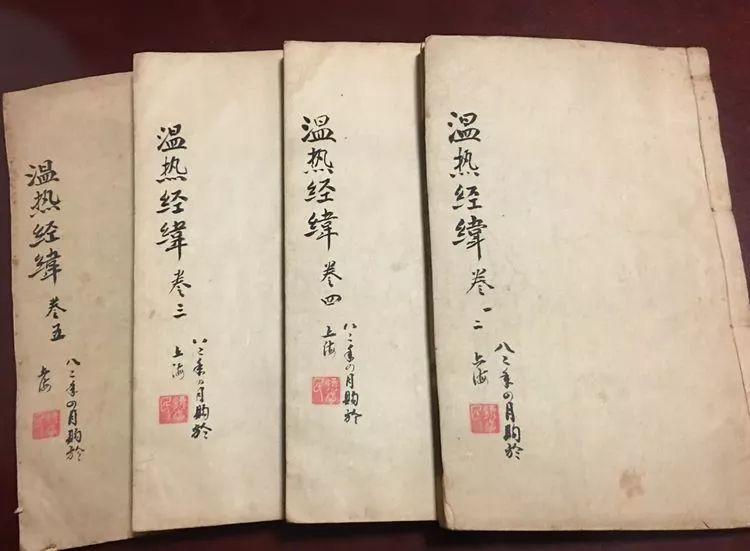 温热经緯 卷一二
八二年四月购於
上海
温热经緯 卷四
八二年四月购於
上海
温热经緯 卷三
八二年四月购於
上海
温热经緯 卷五
八二年四月购於
上海